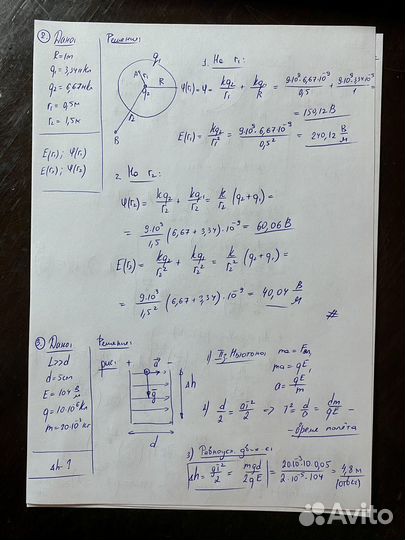 ② Дано:
R = 1м
q₁ = 3,34нКл
q₂ = 6,67нКл
r₁ = 0,5м
r₂ = 1,5м
E(r₁); φ(r₁)
E(r₂); φ(r₂)
Решение:
q₁
A r₁ R
q₂
r₂
B
1. На r₁:
φ(r₁) = φ = kq₂/r₁ + kq₁/R = 9·10⁹·6,67·10⁻⁹/0,5 + 9·10⁹·3,34·10⁻⁹/1 =
= 150,12 В
E(r₁) = kq₂/r₁² = 9·10⁹·6,67·10⁻⁹/0,5² = 240,12 В/м
2. На r₂:
φ(r₂) = kq₂/r₂ + kq₁/r₂ = k/r₂ (q₂+q₁) =
= 9·10⁹/1,5 (6,67 + 3,34)·10⁻⁹ = 60,06 В
E(r₂) = kq₂/r₂² + kq₁/r₂² = k/r₂² (q₂+q₁) =
= 9·10⁹/1,5² (6,67 + 3,34)·10⁻⁹ = 40,04 В/м
#
③ Дано:
L>>d
d = 5см
m = 20·10⁻³кг
Δh - ?
Решение:
рис: + -
g
Δh
d
1) IIз Ньютона:
ma = qE,
a = qE/m
2) d/2 = aτ²/2 => τ² = d/a = dm/qE -
- время полёта
3) Равноуск. движ-е:
Δh = gτ²/2 = mgd/2qE
= 4,8 м
(ответ)
Avito